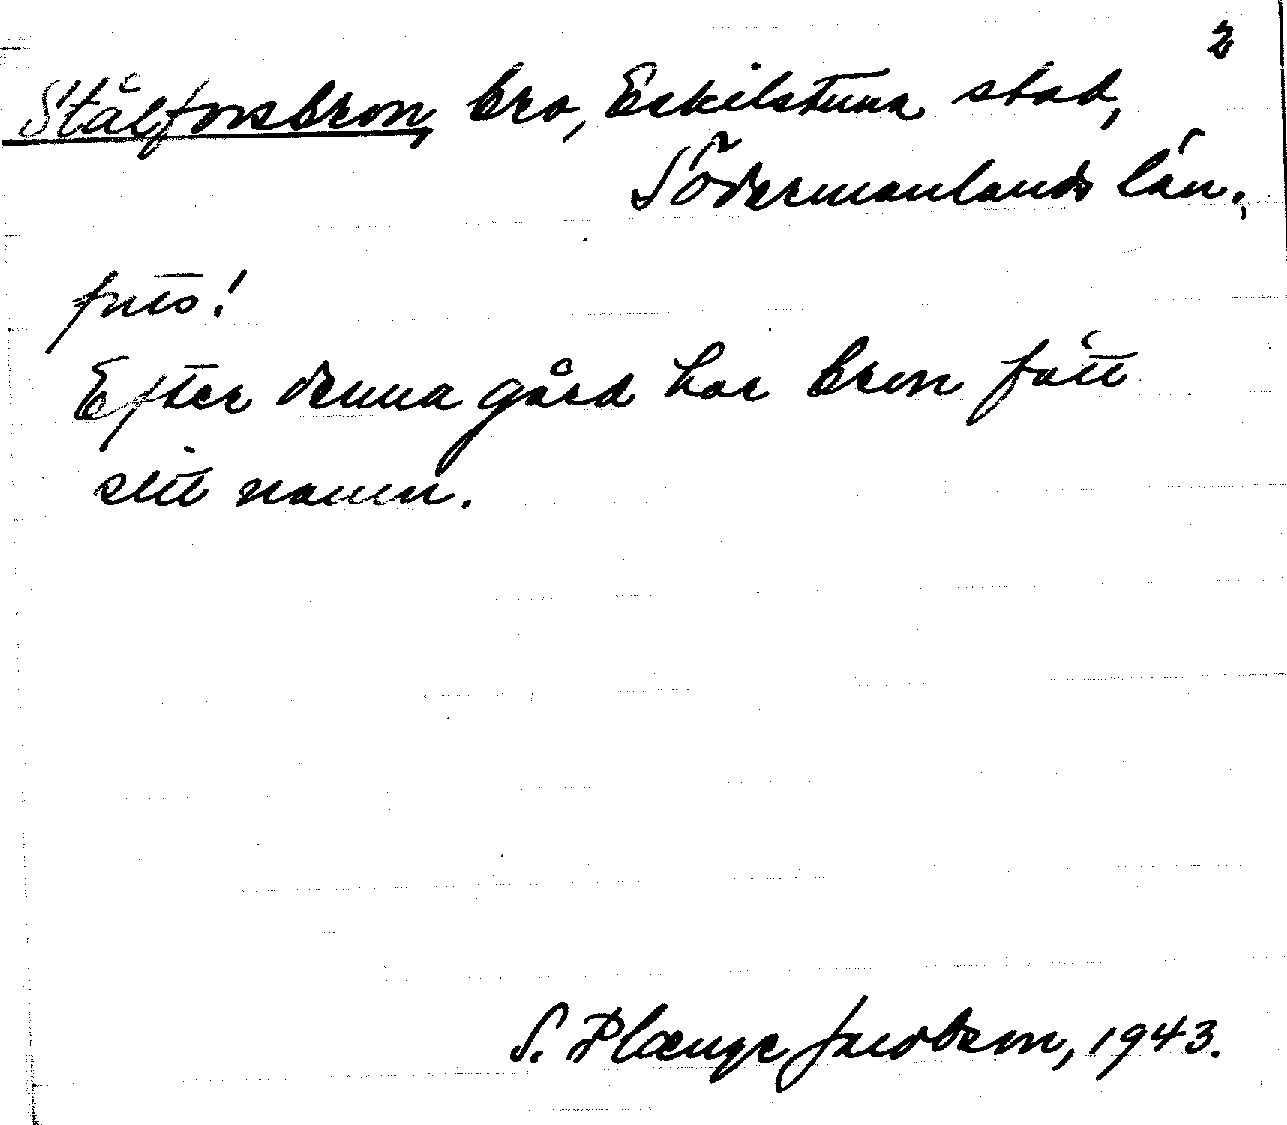 2
Stålforsbron, bro, Eskilstuna stad,
Södermanlands län.
forts!
Efter denna gård har bron fått
sitt namn.
S. Plænge Jacobson, 1943.